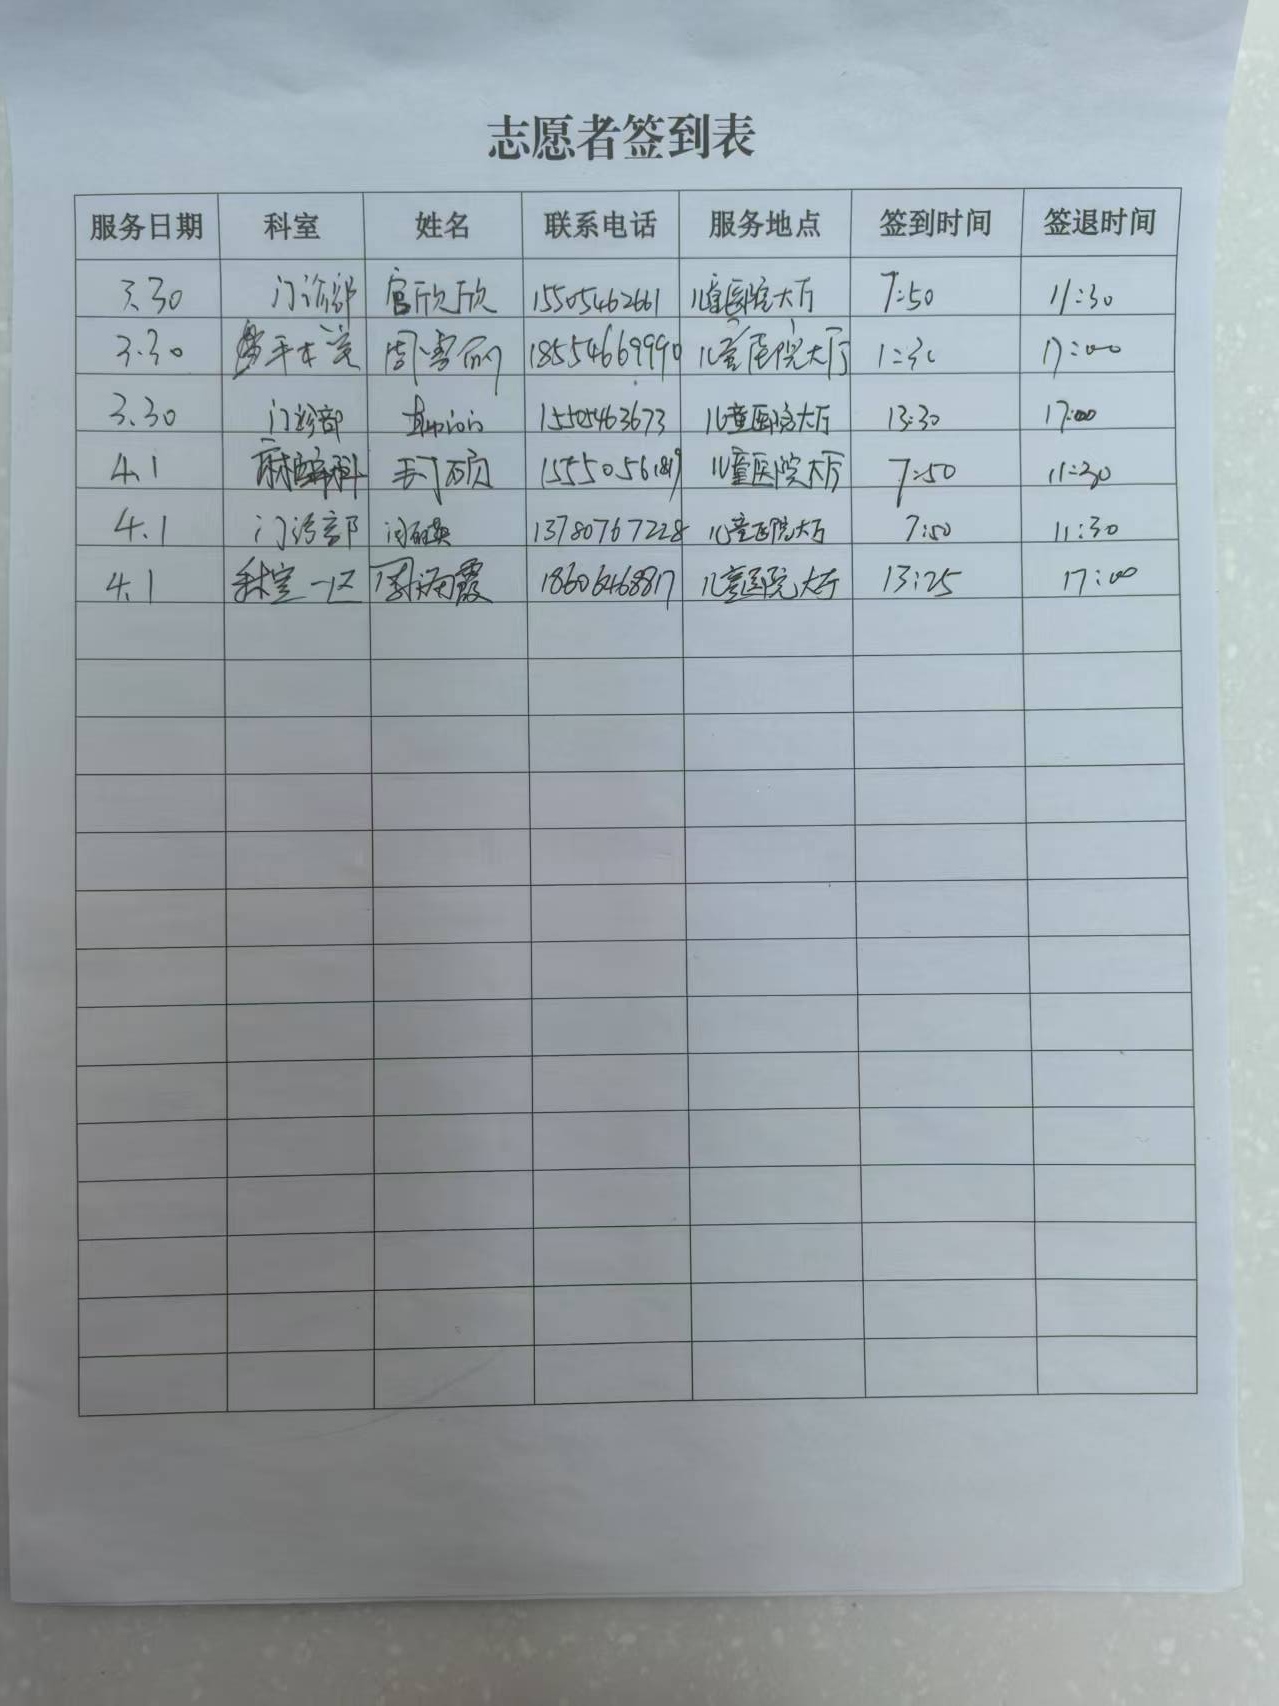 志愿者签到表
服务日期 科室 姓名 联系电话 服务地点 签到时间 签退时间
3.30 门诊部 官欣欣 15505462661 儿童医院大厅 7:50 11:30
3.30 手术室 周雪丽 18554669990 儿童医院大厅 1:30 17:00
3.30 门诊部 15505463673 儿童医院大厅 13:30 17:00
4.1 麻醉科 1555056 儿童医院大厅 7:50 11:30
4.1 门诊部 13780767228 儿童医院大厅 7:50 11:30
4.1 手术室一区 霞 18606468817 儿童医院大厅 13:25 17:00